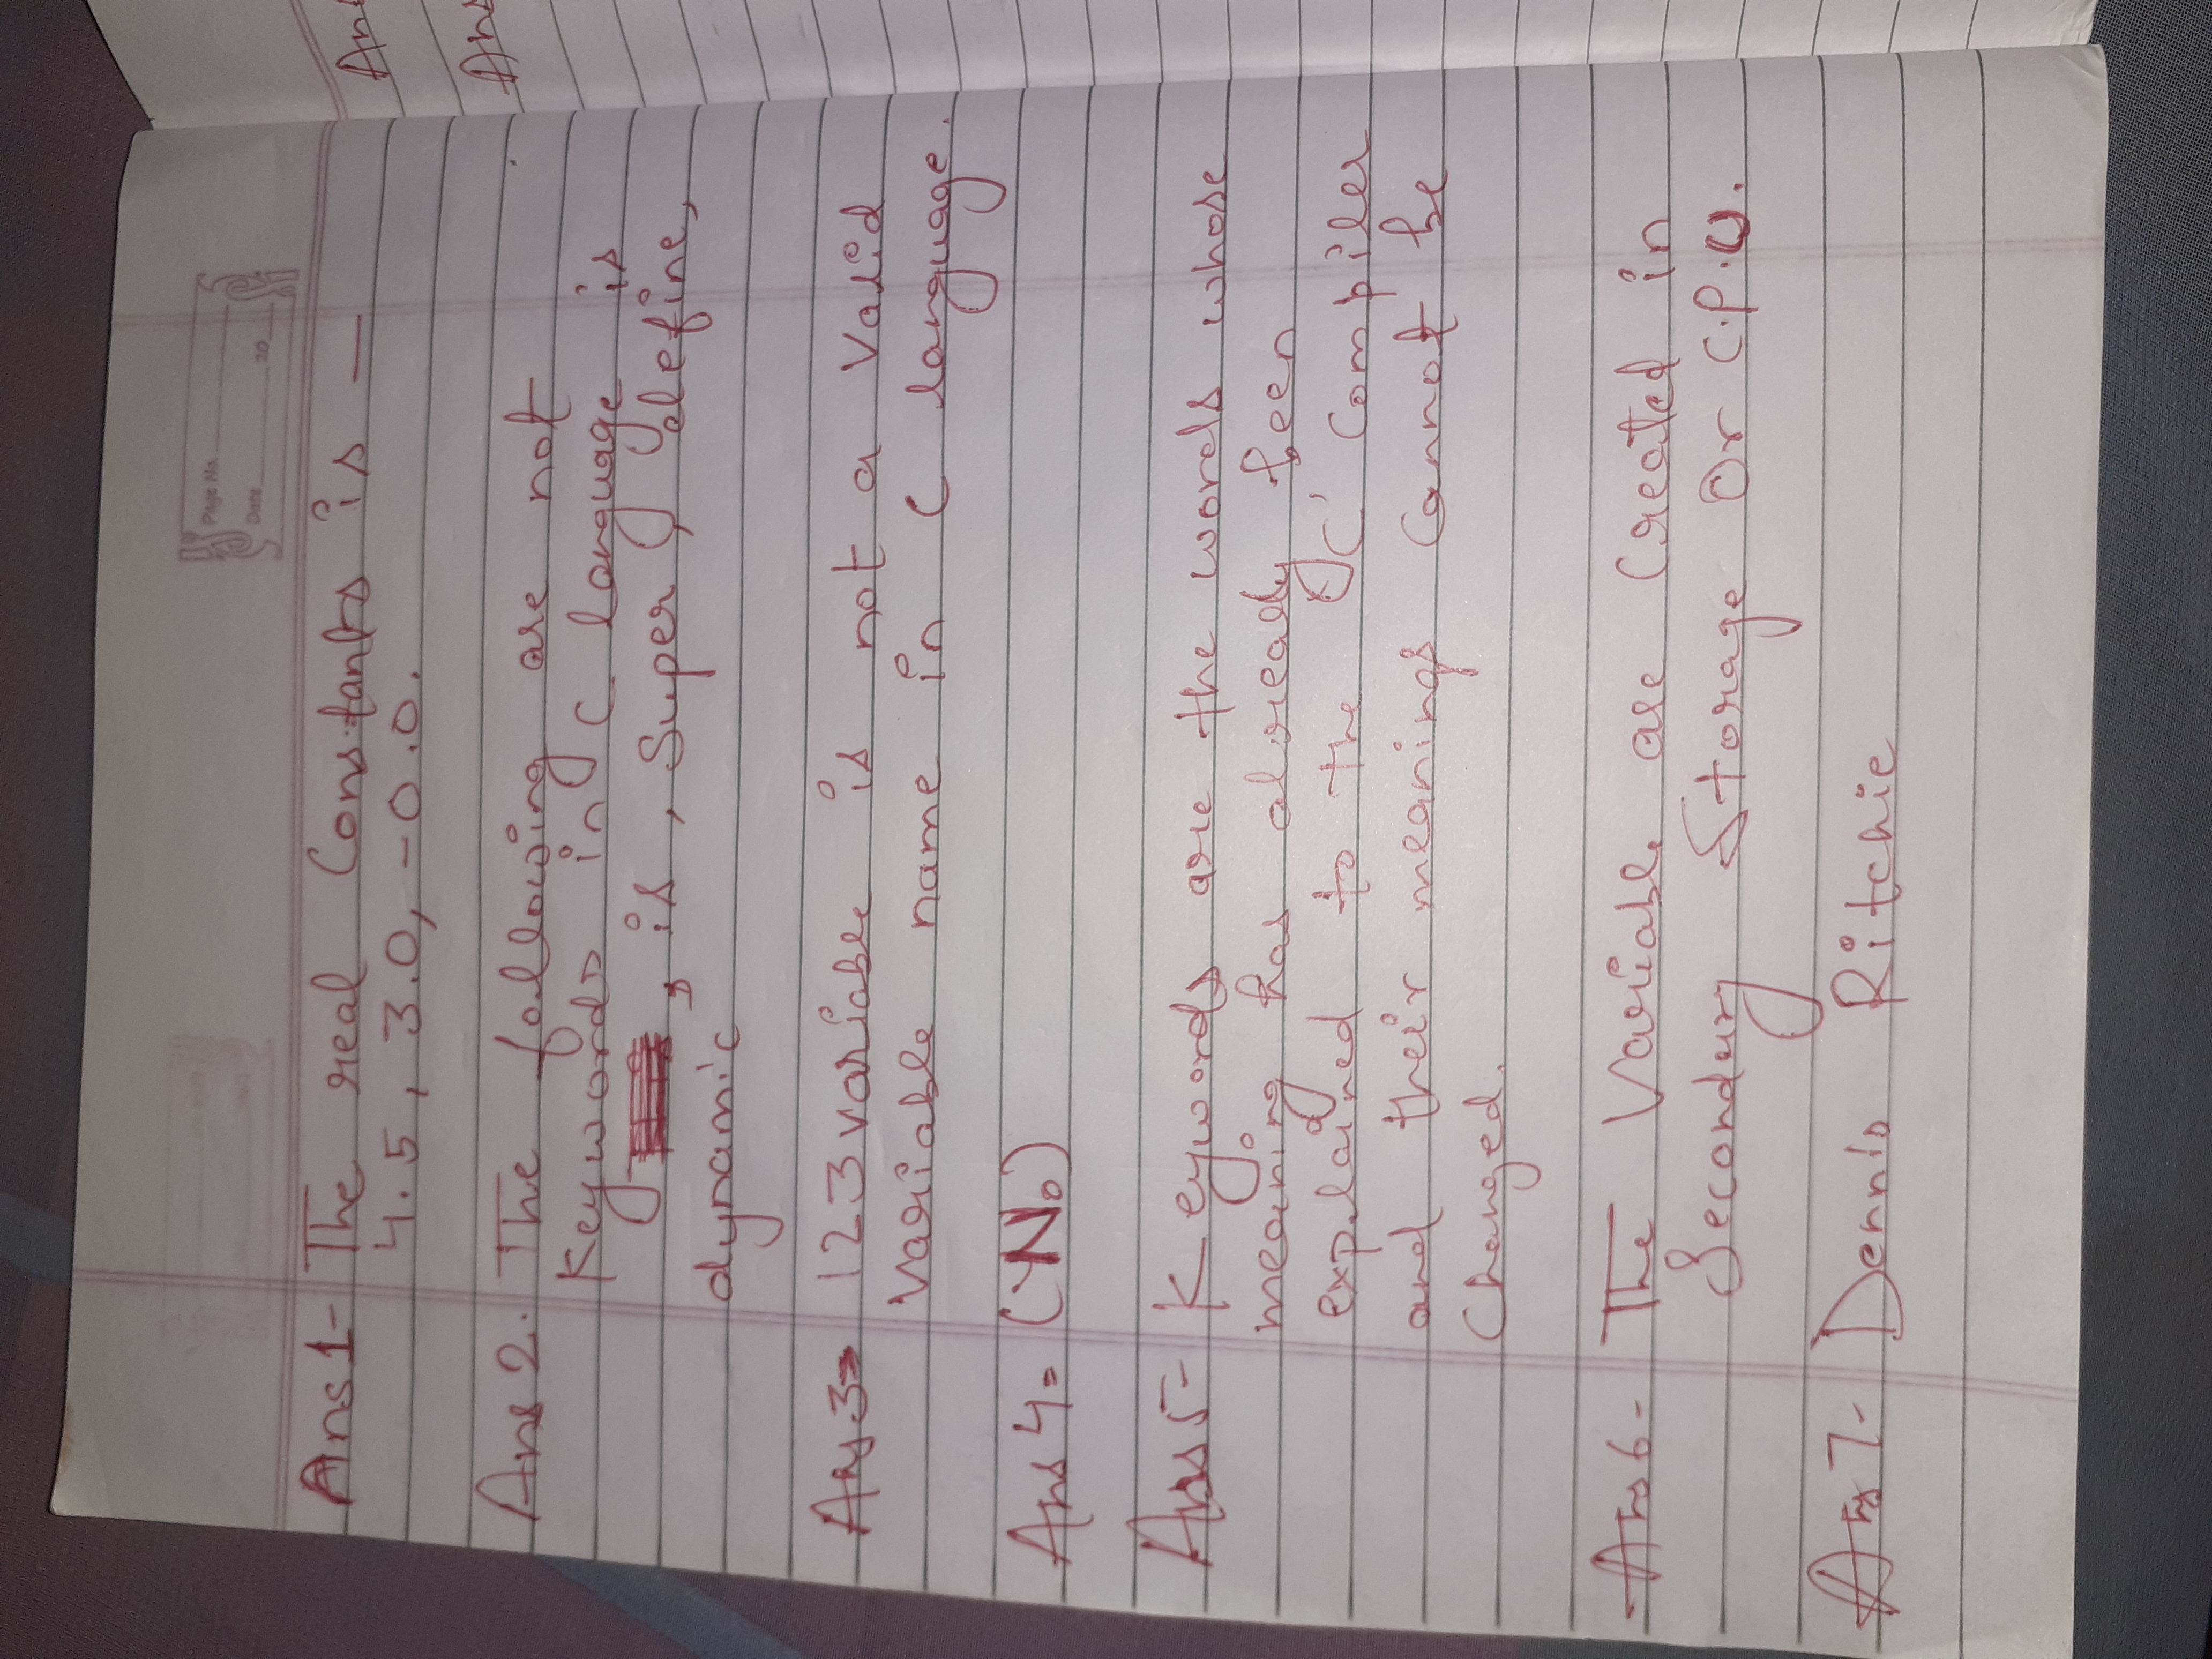 Page No.
Date 20
Ans 1- The real Constants is —
4.5, 3.0, -0.0.
Ans 2. The following are not
Keywords in C language is
, is, Super, define,
dynamic
Ans 3- 123variable is not a Valid
Variable name in C language.
Ans 4- (No)
Ans 5- Keywords are the words whose
meaning has already been
explained to the 'C' Compiler
and their meanings Cannot be
Changed.
Ans 6- The Variable are Created in
Secondary Storage Or C.P.U.
Ans 7- Dennis Ritchie
An
Ans